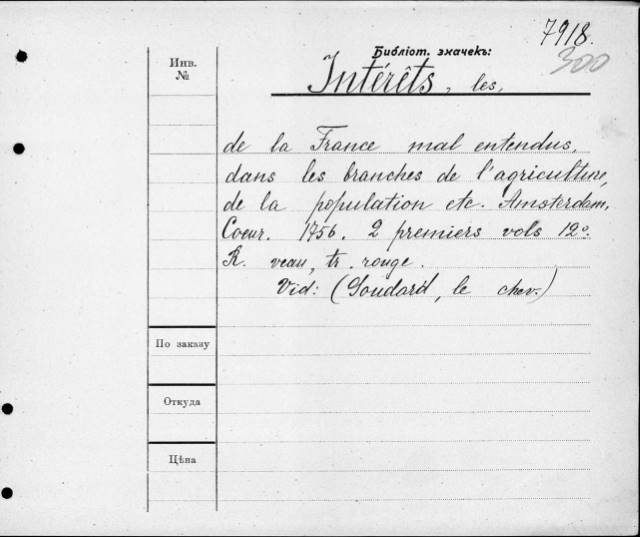 7918.
300
Библіот. значекъ:
Инв.
№
Intérêts, les,
de la France mal entendus,
dans les branches de l'agriculture,
de la population etc. Amsterdam,
Coeur. 1756. 2 premiers vols 12º.
R. veau, tr. rouge.
Vid: (Goudard, le chev.)
По заказу
Откуда
Цѣна